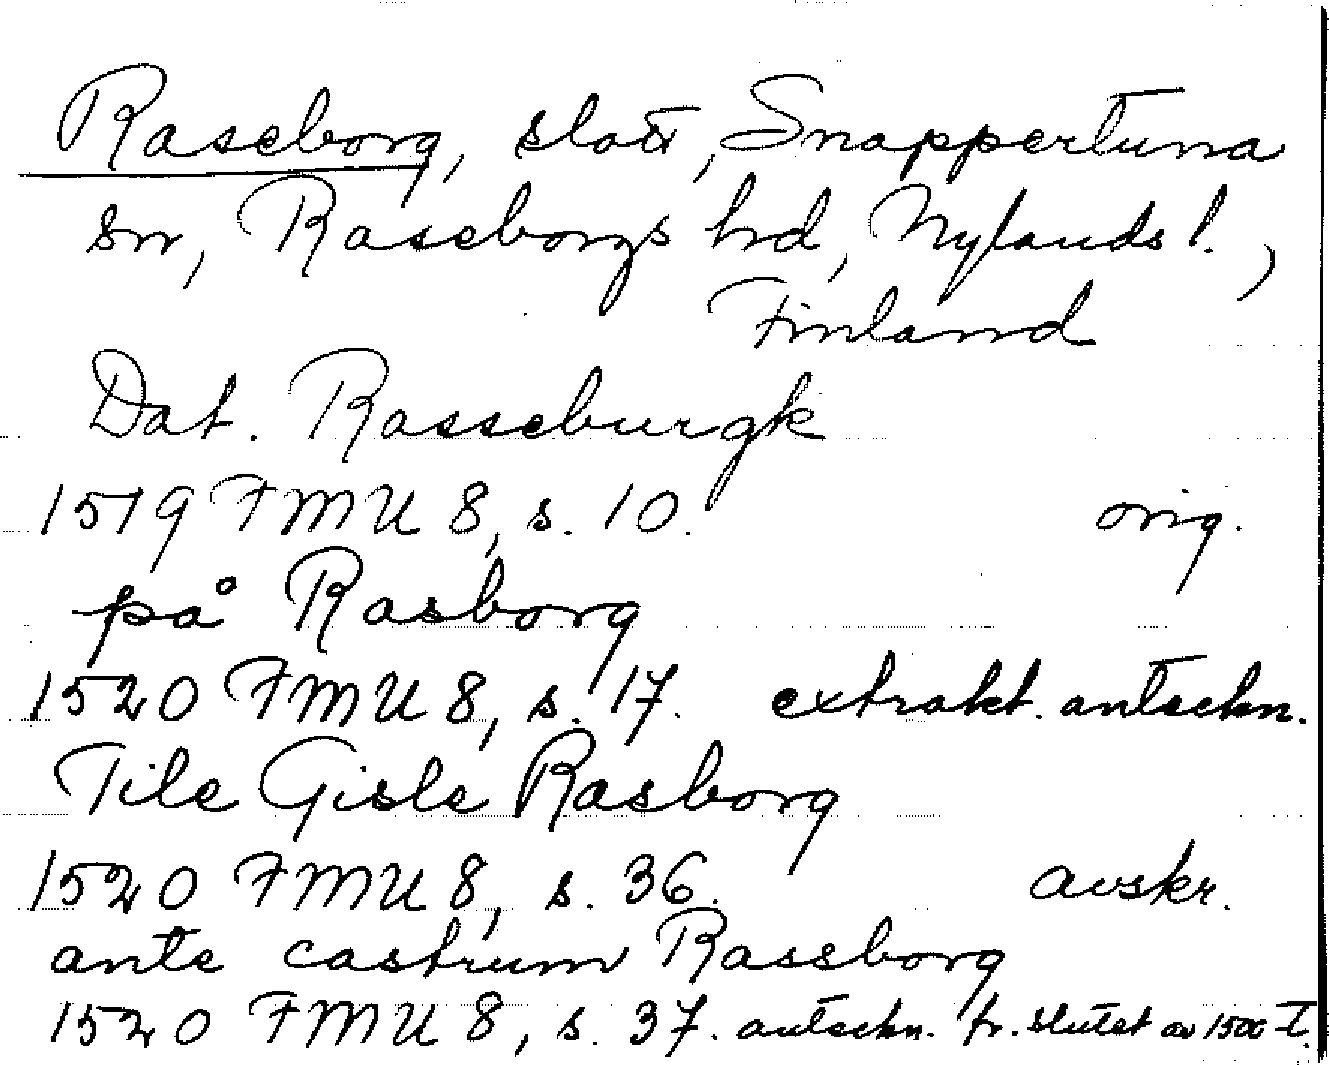 Raseborg, slott, Snappertuna
sn, Raseborgs hrd, Nylands l.,
Finland
Dat. Rasseburgk
1519 FMU 8, s. 10. orig.
på Rasborg
1520 FMU 8, s. 17. extrakt. anteckn.
Tile Gisle Rasborg
1520 FMU 8, s. 36. avskr.
ante castrum Rassborg
1520 FMU 8, s. 37. anteckn. fr. slutet av 1500-t.